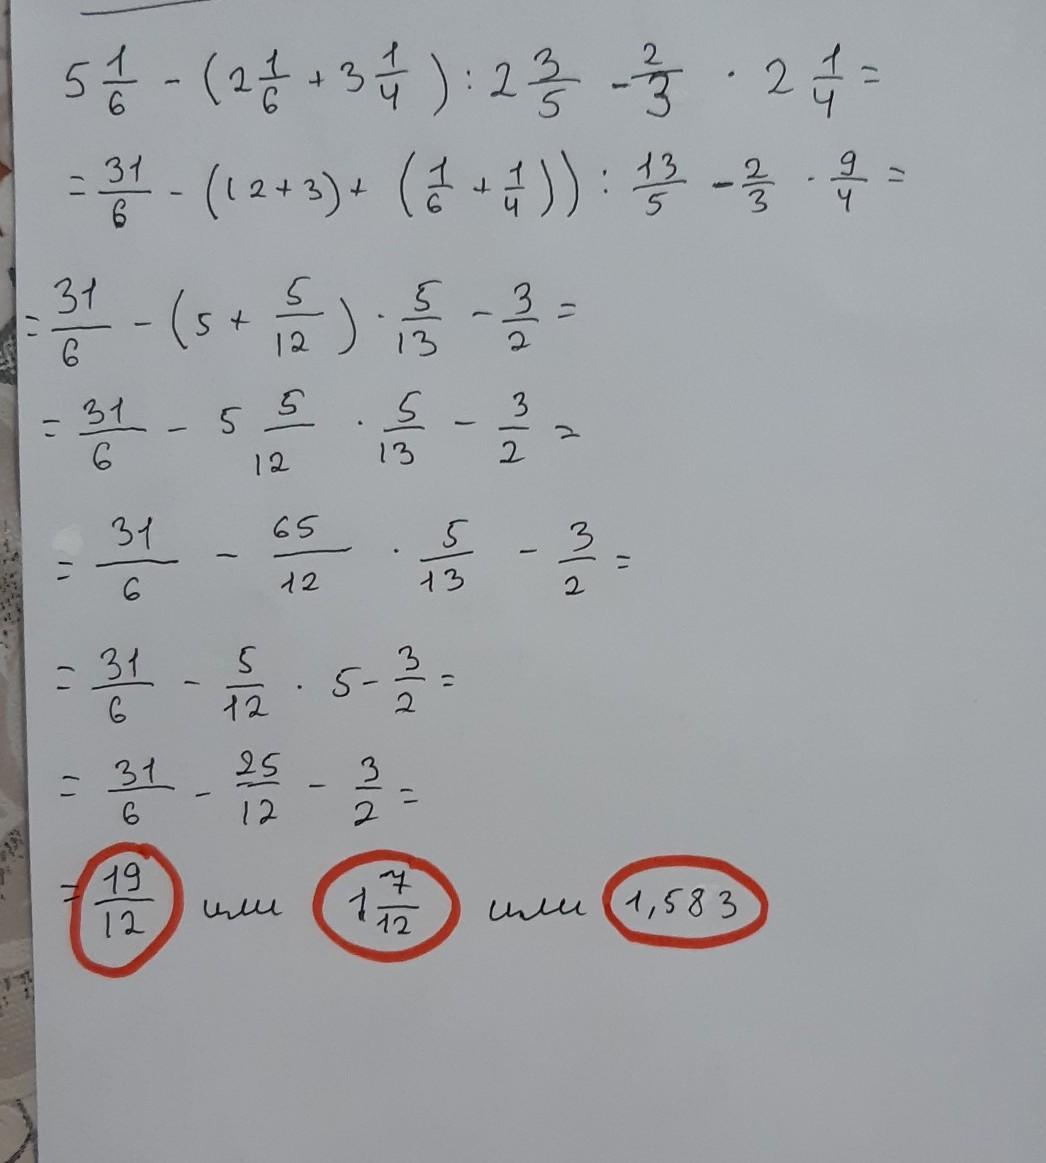 5 1/6 - (2 1/6 + 3 1/4) : 2 3/5 - 2/3 · 2 1/4 =
= 31/6 - ((2 + 3) + (1/6 + 1/4)) : 13/5 - 2/3 · 9/4 =
= 31/6 - (5 + 5/12) · 5/13 - 3/2 =
= 31/6 - 5 5/12 · 5/13 - 3/2 =
= 31/6 - 65/12 · 5/13 - 3/2 =
= 31/6 - 5/12 · 5 - 3/2 =
= 31/6 - 25/12 - 3/2 =
= 19/12 или 1 7/12 или 1,583